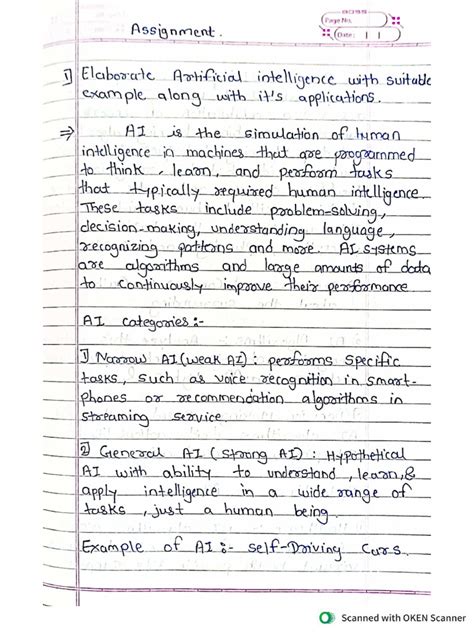 Assignment.
Page No.
Date: | |
1) Elaborate Artificial intelligence with suitable
example along with it's applications.
⇒ AI is the simulation of human
intelligence in machines that are programmed
to think, learn, and perform tasks
that typically required human intelligence.
These tasks include problem-solving,
decision-making, understanding language,
recognizing patterns and more. AI systems
are algorithms and large amounts of data
to continuously improve their performance
AI categories:-
1) Narrow AI (weak AI): performs specific
tasks, such as voice recognition in smart-
phones or recommendation algorithms in
streaming service.
2) General AI (strong AI): Hypothetical
AI with ability to understand, learn, &
apply intelligence in a wide range of
tasks, just a human being.
Example of AI:- self-Driving Cars.
Scanned with OKEN Scanner